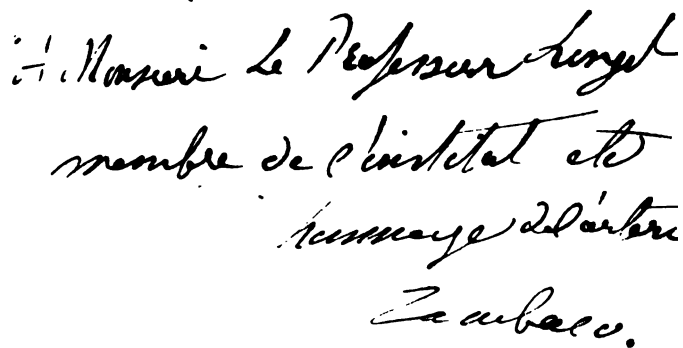 A Monsieur Le Professeur Longet
membre de l'institut etc
hommage de l'auteur
Zambaco.